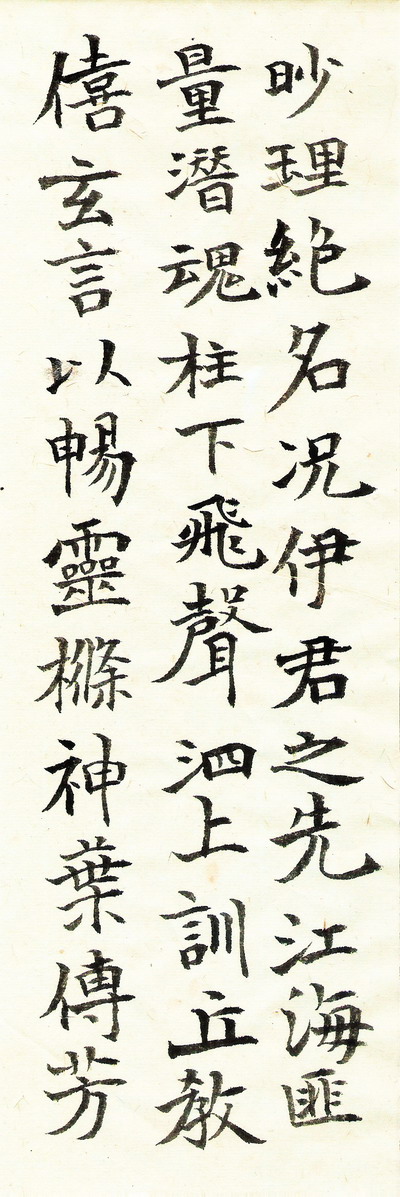 眇理絶名况伊君之先江海匪
量潛魂柱下飛聲泗上訓丘教
僖玄言以暢靈樤神葉傳芳